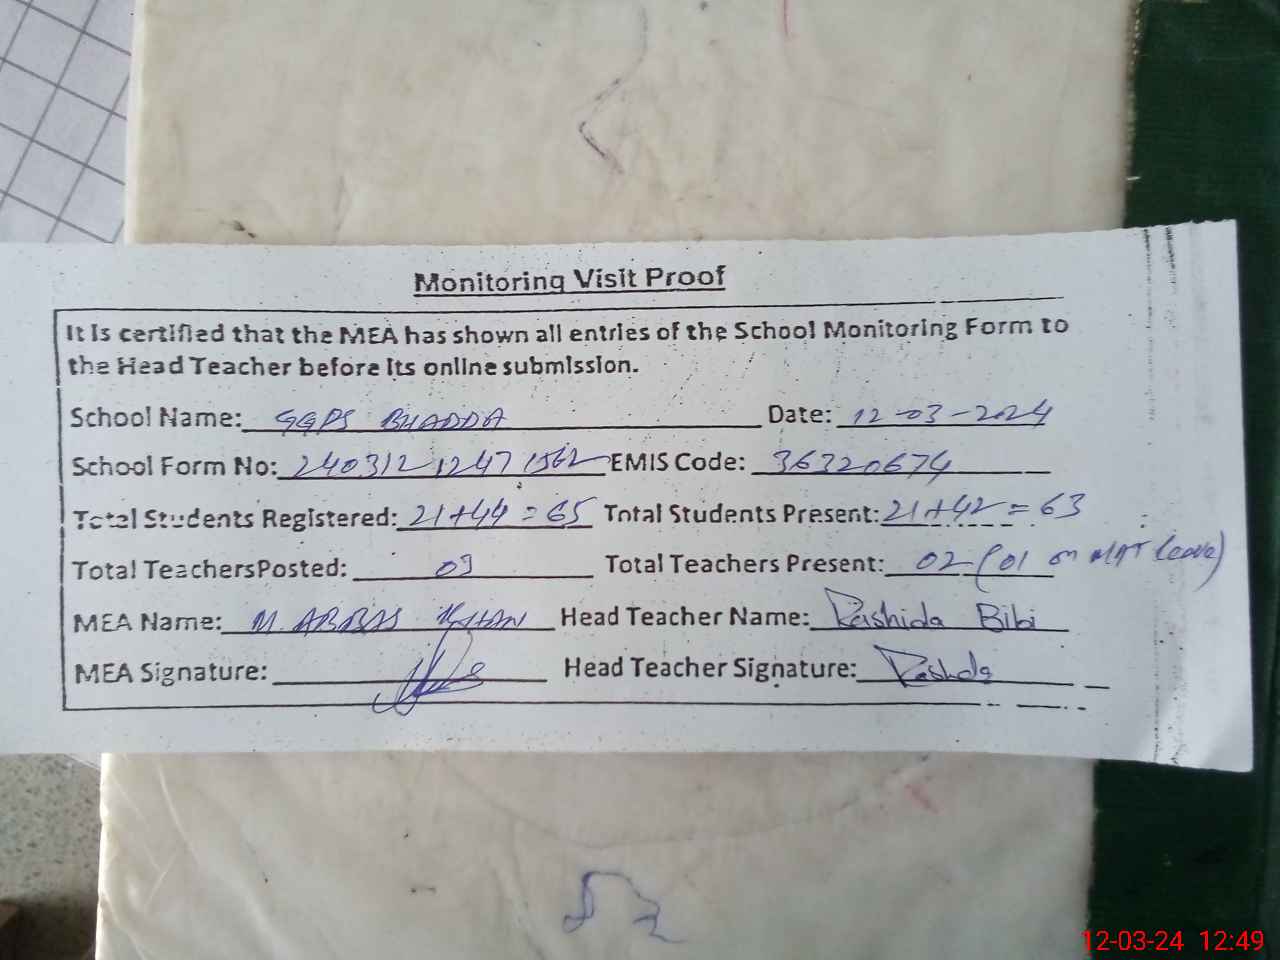 Monitoring Visit Proof
It is certified that the MEA has shown all entries of the School Monitoring Form to
the Head Teacher before its online submission.
School Name: GGPS BHADDA Date: 12-03-2024
School Form No: 240312 1247 1562 EMIS Code: 36320674
Total Students Registered: 21+44 = 65 Total Students Present: 21+42 = 63
Total TeachersPosted: 03 Total Teachers Present: 02 (01 on MAT leave)
MEA Name: M. ABBAS KHAN Head Teacher Name: Rashida Bibi
MEA Signature: Head Teacher Signature: Rashda
12-03-24 12:49